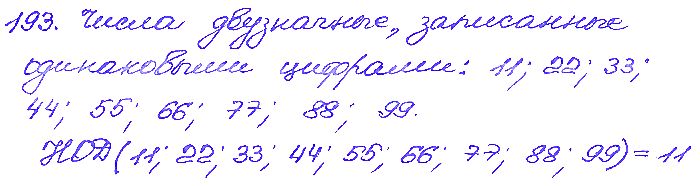 193. Числа двузначные, записанные
одинаковыми цифрами: 11; 22; 33;
44; 55; 66; 77; 88; 99.
НОД(11; 22; 33; 44; 55; 66; 77; 88; 99)=11